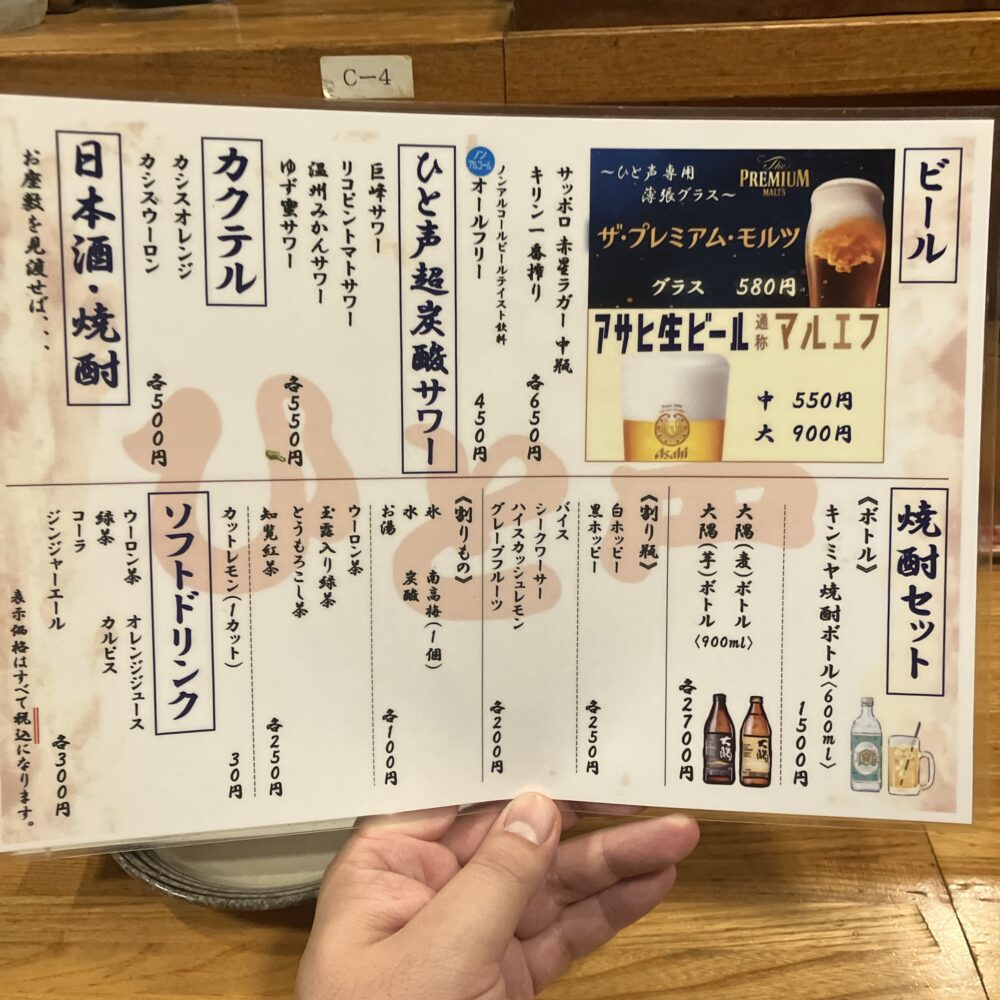 C-4
ビール
～ひと声専用
薄張グラス～
The
PREMIUM
MALT'S
ザ・プレミアム・モルツ
グラス 580円
アサヒ生ビール 通称 マルエフ
Asahi
中 550円
大 900円
サッポロ 赤星ラガー 中瓶
キリン一番搾り
各650円
ノンアルコール
ノンアルコールビールテイスト飲料
オールフリー
450円
ひと声超炭酸サワー
巨峰サワー
リコピントマトサワー
温州みかんサワー
ゆず蜜サワー
各550円
カクテル
カシスオレンジ
カシスウーロン
各500円
日本酒・焼酎
お座敷を見渡せば、、、
焼酎セット
《ボトル》
キンミヤ焼酎ボトル〈600ml〉
1500円
大隅（麦）ボトル
大隅（芋）ボトル
〈900ml〉
各2700円
大隅
大隅
《割り瓶》
白ホッピー
黒ホッピー
各250円
バイス
シークワーサー
ハイスカッシュレモン
グレープフルーツ
各200円
《割りもの》
氷 南高梅（1個）
水 炭酸
お湯
各100円
ウーロン茶
玉露入り緑茶
とうもろこし茶
知覧紅茶
各250円
カットレモン（1カット）
30円
ソフトドリンク
ウーロン茶 オレンジジュース
緑茶 カルピス
コーラ
ジンジャーエール
各300円
表示価格はすべて税込になります。